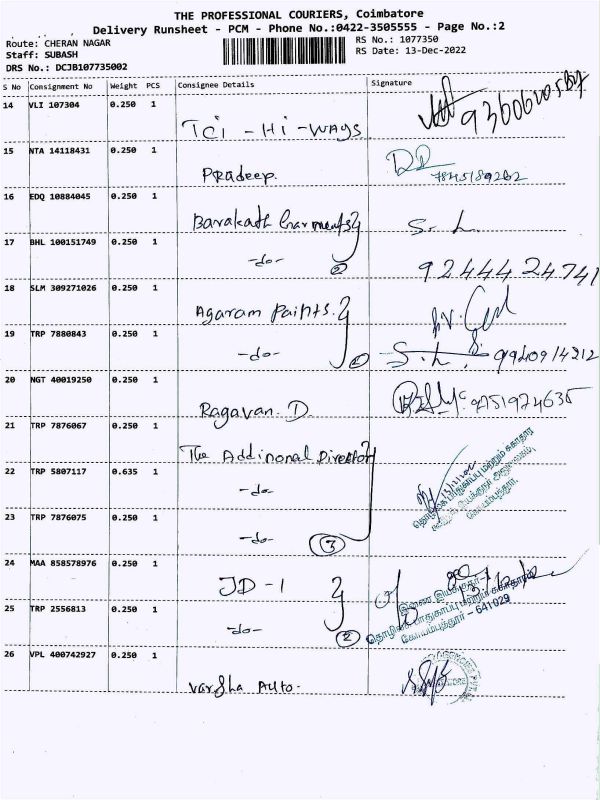 THE PROFESSIONAL COURIERS, Coimbatore
Delivery Runsheet - PCM - Phone No.:0422-3505555 - Page No.:2
Route: CHERAN NAGAR
Staff: SUBASH
DRS No.: DCJB107735002
RS No.: 1077350
RS Date: 13-Dec-2022
S No Consignment No Weight PCS Consignee Details Signature
14 VLI 107304 0.250 1
TCi - Hi - WAYS
15 NTA 14118431 0.250 1
Pradeep.
7845189262
16 EDQ 10884045 0.250 1
Barakath Garments
17 BHL 100151749 0.250 1
-do- 2
9244424741
18 SLM 309271026 0.250 1
Agaram Paints.
19 TRP 7880843 0.250 1
-do- 2
9940914212
20 NGT 40019250 0.250 1
Ragavan. D.
9751974635
21 TRP 7876067 0.250 1
The Addinonal Director
22 TRP 5807117 0.635 1
-do-
23 TRP 7876075 0.250 1
-do- 3
தொழிலக பாதுகாப்பு மற்றும் சுகாதார
கோயம்புத்தூர்.
24 MAA 858578976 0.250 1
JD - 1
25 TRP 2556813 0.250 1
-do- 2
இணை இயக்குநர்-1
தொழிலக பாதுகாப்பு மற்றும் சுகாதாரம்
கோயம்புத்தூர் - 641029
26 VPL 400742927 0.250 1
Varsha Auto.